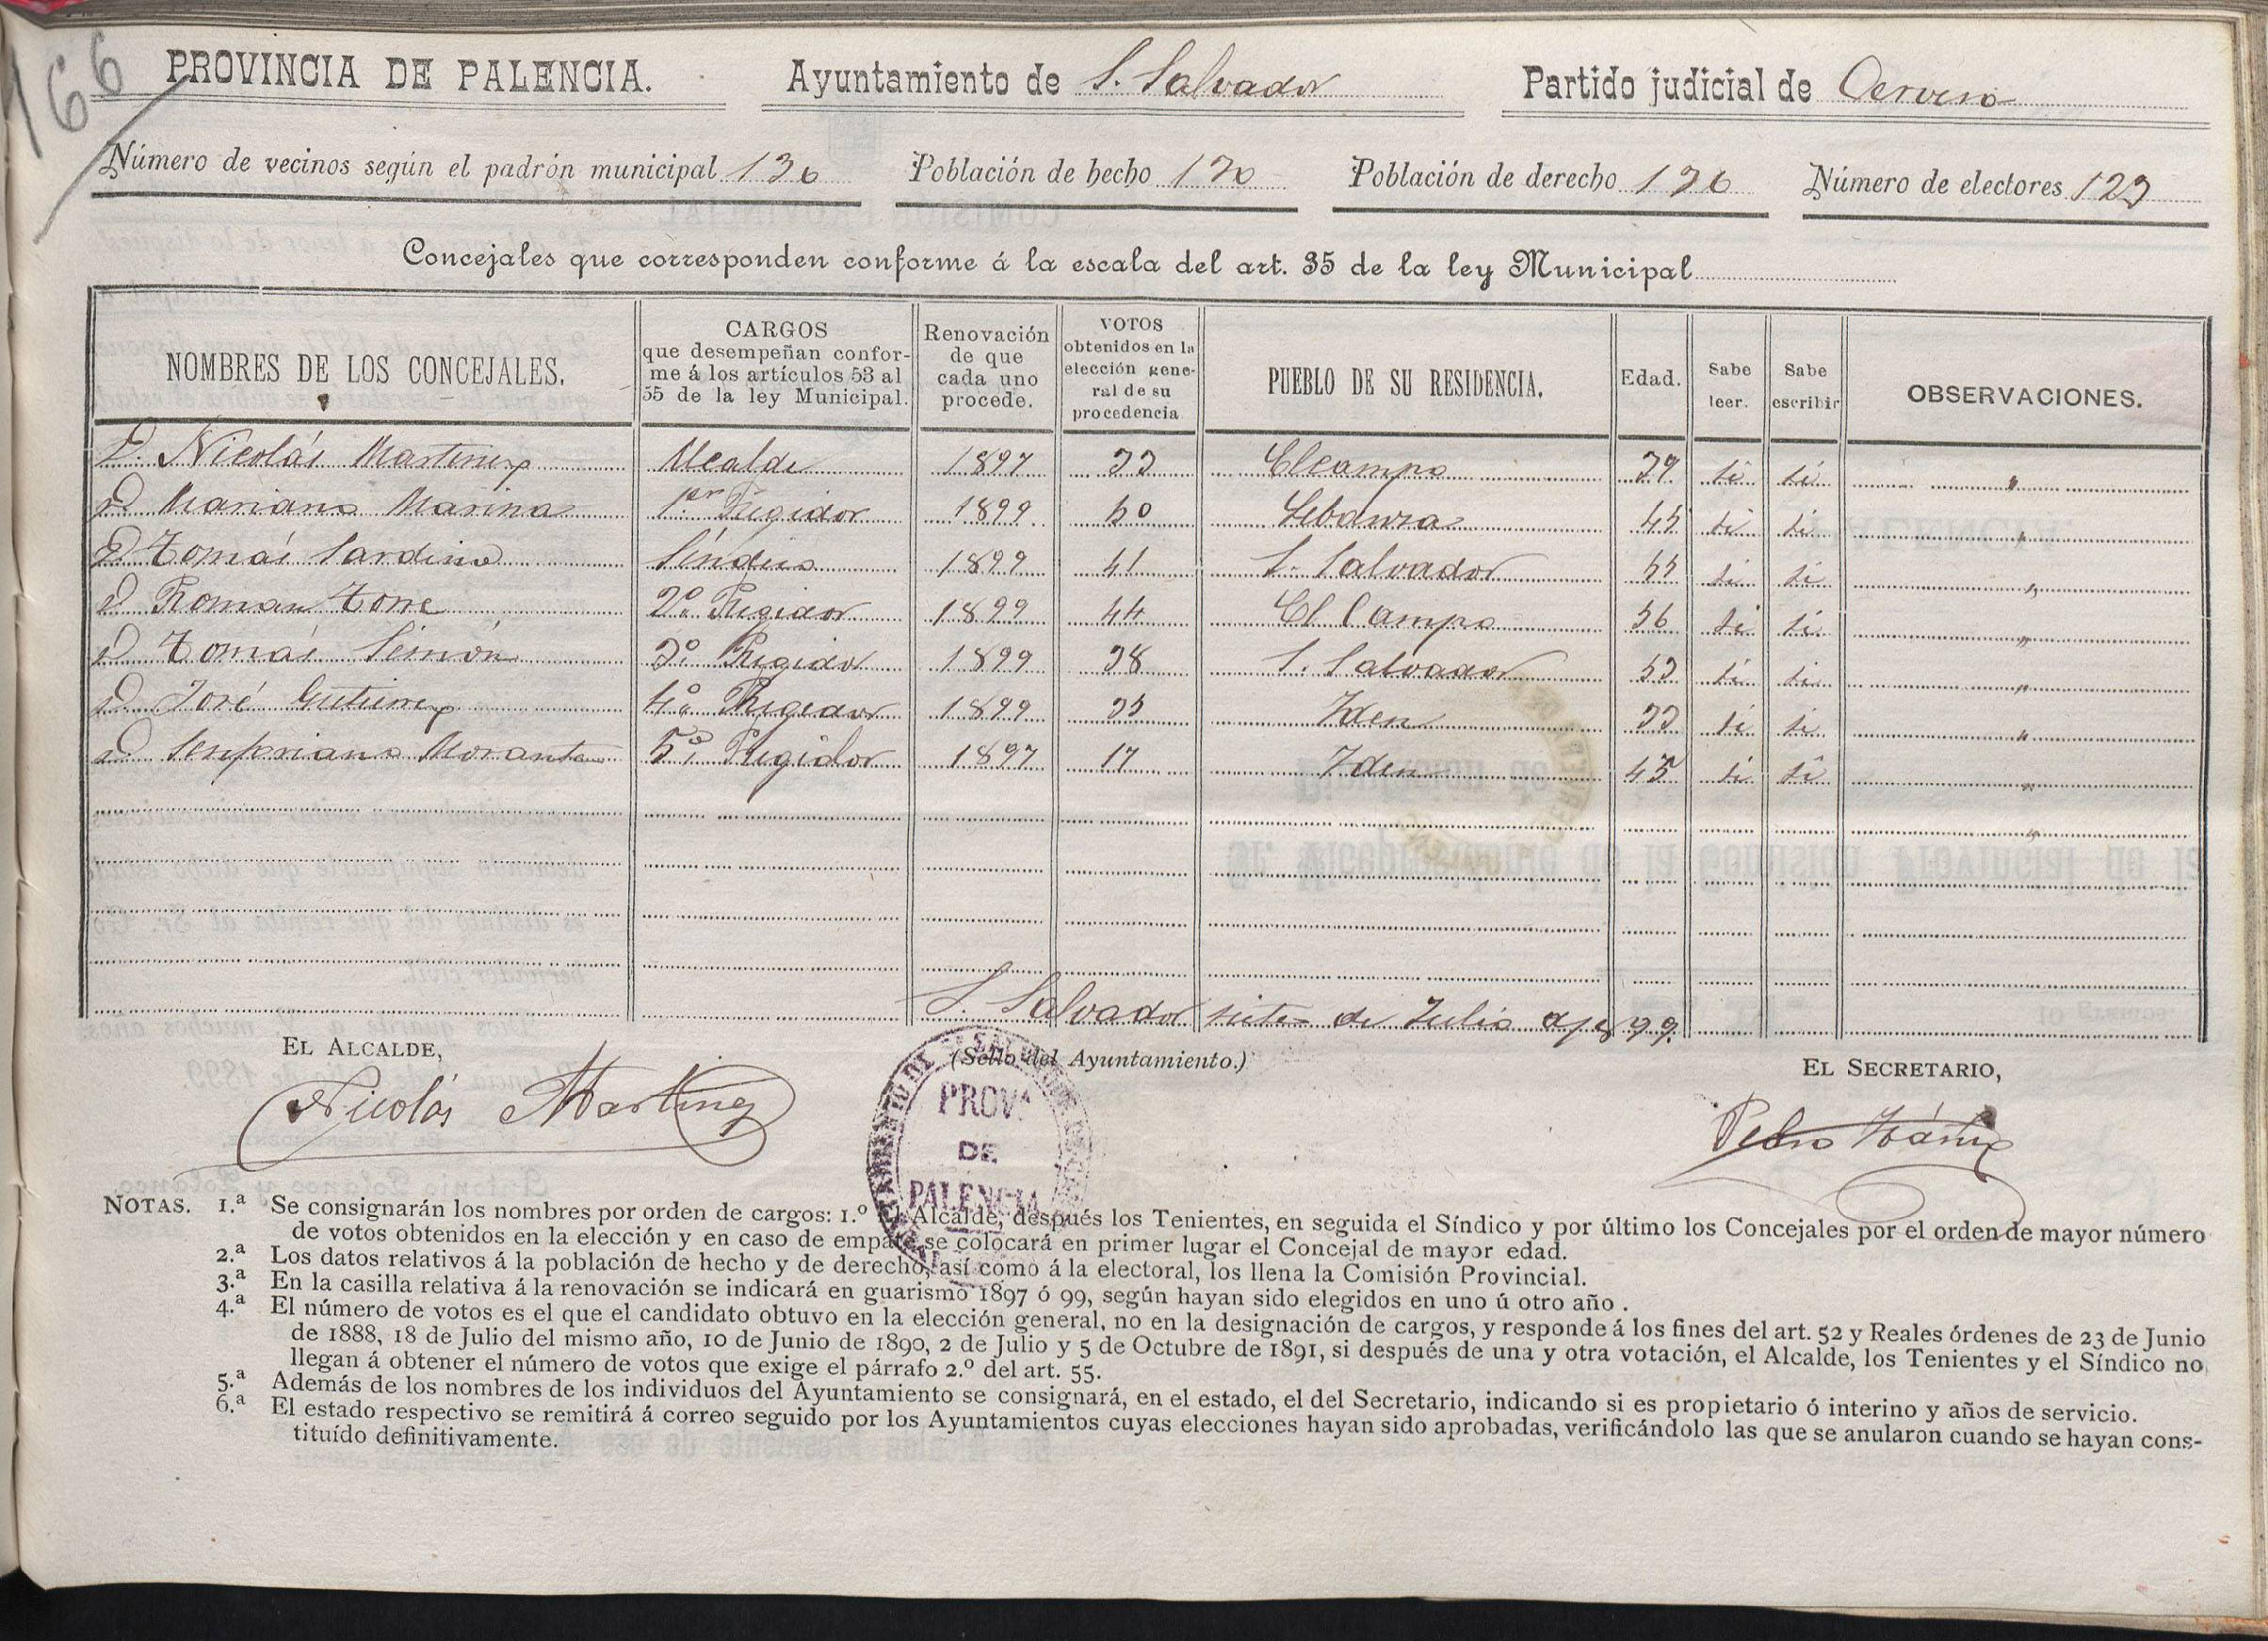 166
PROVINCIA DE PALENCIA. Ayuntamiento de S. Salvador Partido judicial de Cervera
Número de vecinos según el padrón municipal 136 Población de hecho 130 Población de derecho 136 Número de electores 123
Concejales que corresponden conforme á la escala del art. 35 de la ley Municipal
NOMBRES DE LOS CONCEJALES. CARGOS que desempeñan conforme á los artículos 53 al 55 de la ley Municipal. Renovación de que cada uno procede. VOTOS obtenidos en la elección general de su procedencia PUEBLO DE SU RESIDENCIA. Edad. Sabe leer. Sabe escribir OBSERVACIONES.
D. Nicolás Martinez Alcalde 1897 33 El campo 39 si si "
D. Mariano Marina 1er Regidor 1899 50 Lebanza 45 si si "
D. Tomás Sardino Síndico 1899 41 S. Salvador 55 si si "
D. Roman Torre 2º Regidor 1899 44 El Campo 56 si si "
D. Tomás Simón 3º Regidor 1899 38 S. Salvador 53 si si "
D. José Gutierrez 4º Regidor 1899 35 Iden 33 si si "
D. Morante 5º Regidor 1897 17 Iden 45 si si "
S. Salvador siete de Julio de 1899.
EL ALCALDE, (Sello del Ayuntamiento.) EL SECRETARIO,
Nicolás Martinez Pedro Ibáñez
AYUNTAMIENTO DE S. SALVADOR
PROVA
DE
PALENCIA
NOTAS. 1.ª Se consignarán los nombres por orden de cargos: 1.º el Alcalde, después los Tenientes, en seguida el Síndico y por último los Concejales por el orden de mayor número
de votos obtenidos en la elección y en caso de empate se colocará en primer lugar el Concejal de mayor edad.
2.ª Los datos relativos á la población de hecho y de derecho, así como á la electoral, los llena la Comisión Provincial.
3.ª En la casilla relativa á la renovación se indicará en guarismo 1897 ó 99, según hayan sido elegidos en uno ú otro año.
4.ª El número de votos es el que el candidato obtuvo en la elección general, no en la designación de cargos, y responde á los fines del art. 52 y Reales órdenes de 23 de Junio
de 1888, 18 de Julio del mismo año, 10 de Junio de 1890, 2 de Julio y 5 de Octubre de 1891, si después de una y otra votación, el Alcalde, los Tenientes y el Síndico no
llegan á obtener el número de votos que exige el párrafo 2.º del art. 55.
5.ª Además de los nombres de los individuos del Ayuntamiento se consignará, en el estado, el del Secretario, indicando si es propietario ó interino y años de servicio.
6.ª El estado respectivo se remitirá á correo seguido por los Ayuntamientos cuyas elecciones hayan sido aprobadas, verificándolo las que se anularon cuando se hayan cons-
tituído definitivamente.